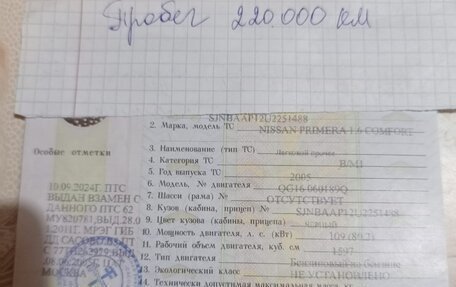 Пробег 220.000 км
SJNBAAP12U2251488
2. Марка, модель ТС NISSAN PRIMERA 1.6 COMFORT
3. Наименование (тип ТС) Легковой прочее
4. Категория ТС B/M1
5. Год выпуска ТС 2005
6. Модель, № двигателя QG16 060189Q
7. Шасси (рама) № ОТСУТСТВУЕТ
8. Кузов (кабина, прицеп) № SJNBAAP12U2251488
9. Цвет кузова (кабины, прицепа) ЧЕРНЫЙ
10. Мощность двигателя, л. с. (кВт) 109 (80.2)
11. Рабочий объем двигателя, куб. см 1597
12. Тип двигателя Бензиновый на бензине
13. Экологический класс НЕ УСТАНОВЛЕНО
14. Технически допустимая максимальная масса, кг
Особые отметки
10.09.2024Г. ПТС
ВЫДАН ВЗАМЕН С
ДАННОГО ПТС 62
МУ820781,ВЫД.28.0
1.2011Г. МРЭГ ГИБ
МОСКВА